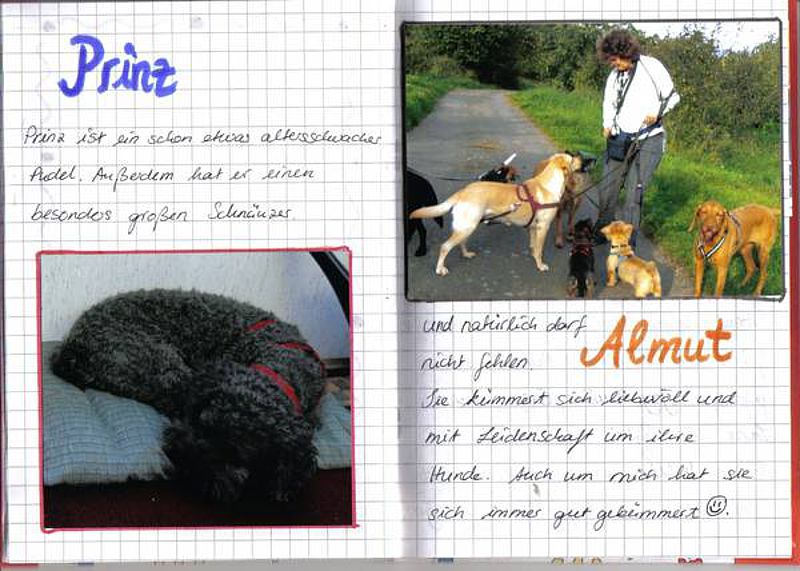 Prinz
Prinz ist ein schon etwas altersschwacher
Pudel. Außerdem hat er einen
besonders großen Schnäuzer.
und natürlich darf
Almut
nicht fehlen.
Sie kümmert sich liebevoll und
mit Leidenschaft um ihre
Hunde. Auch um mich hat sie
sich immer gut gekümmert ☺.